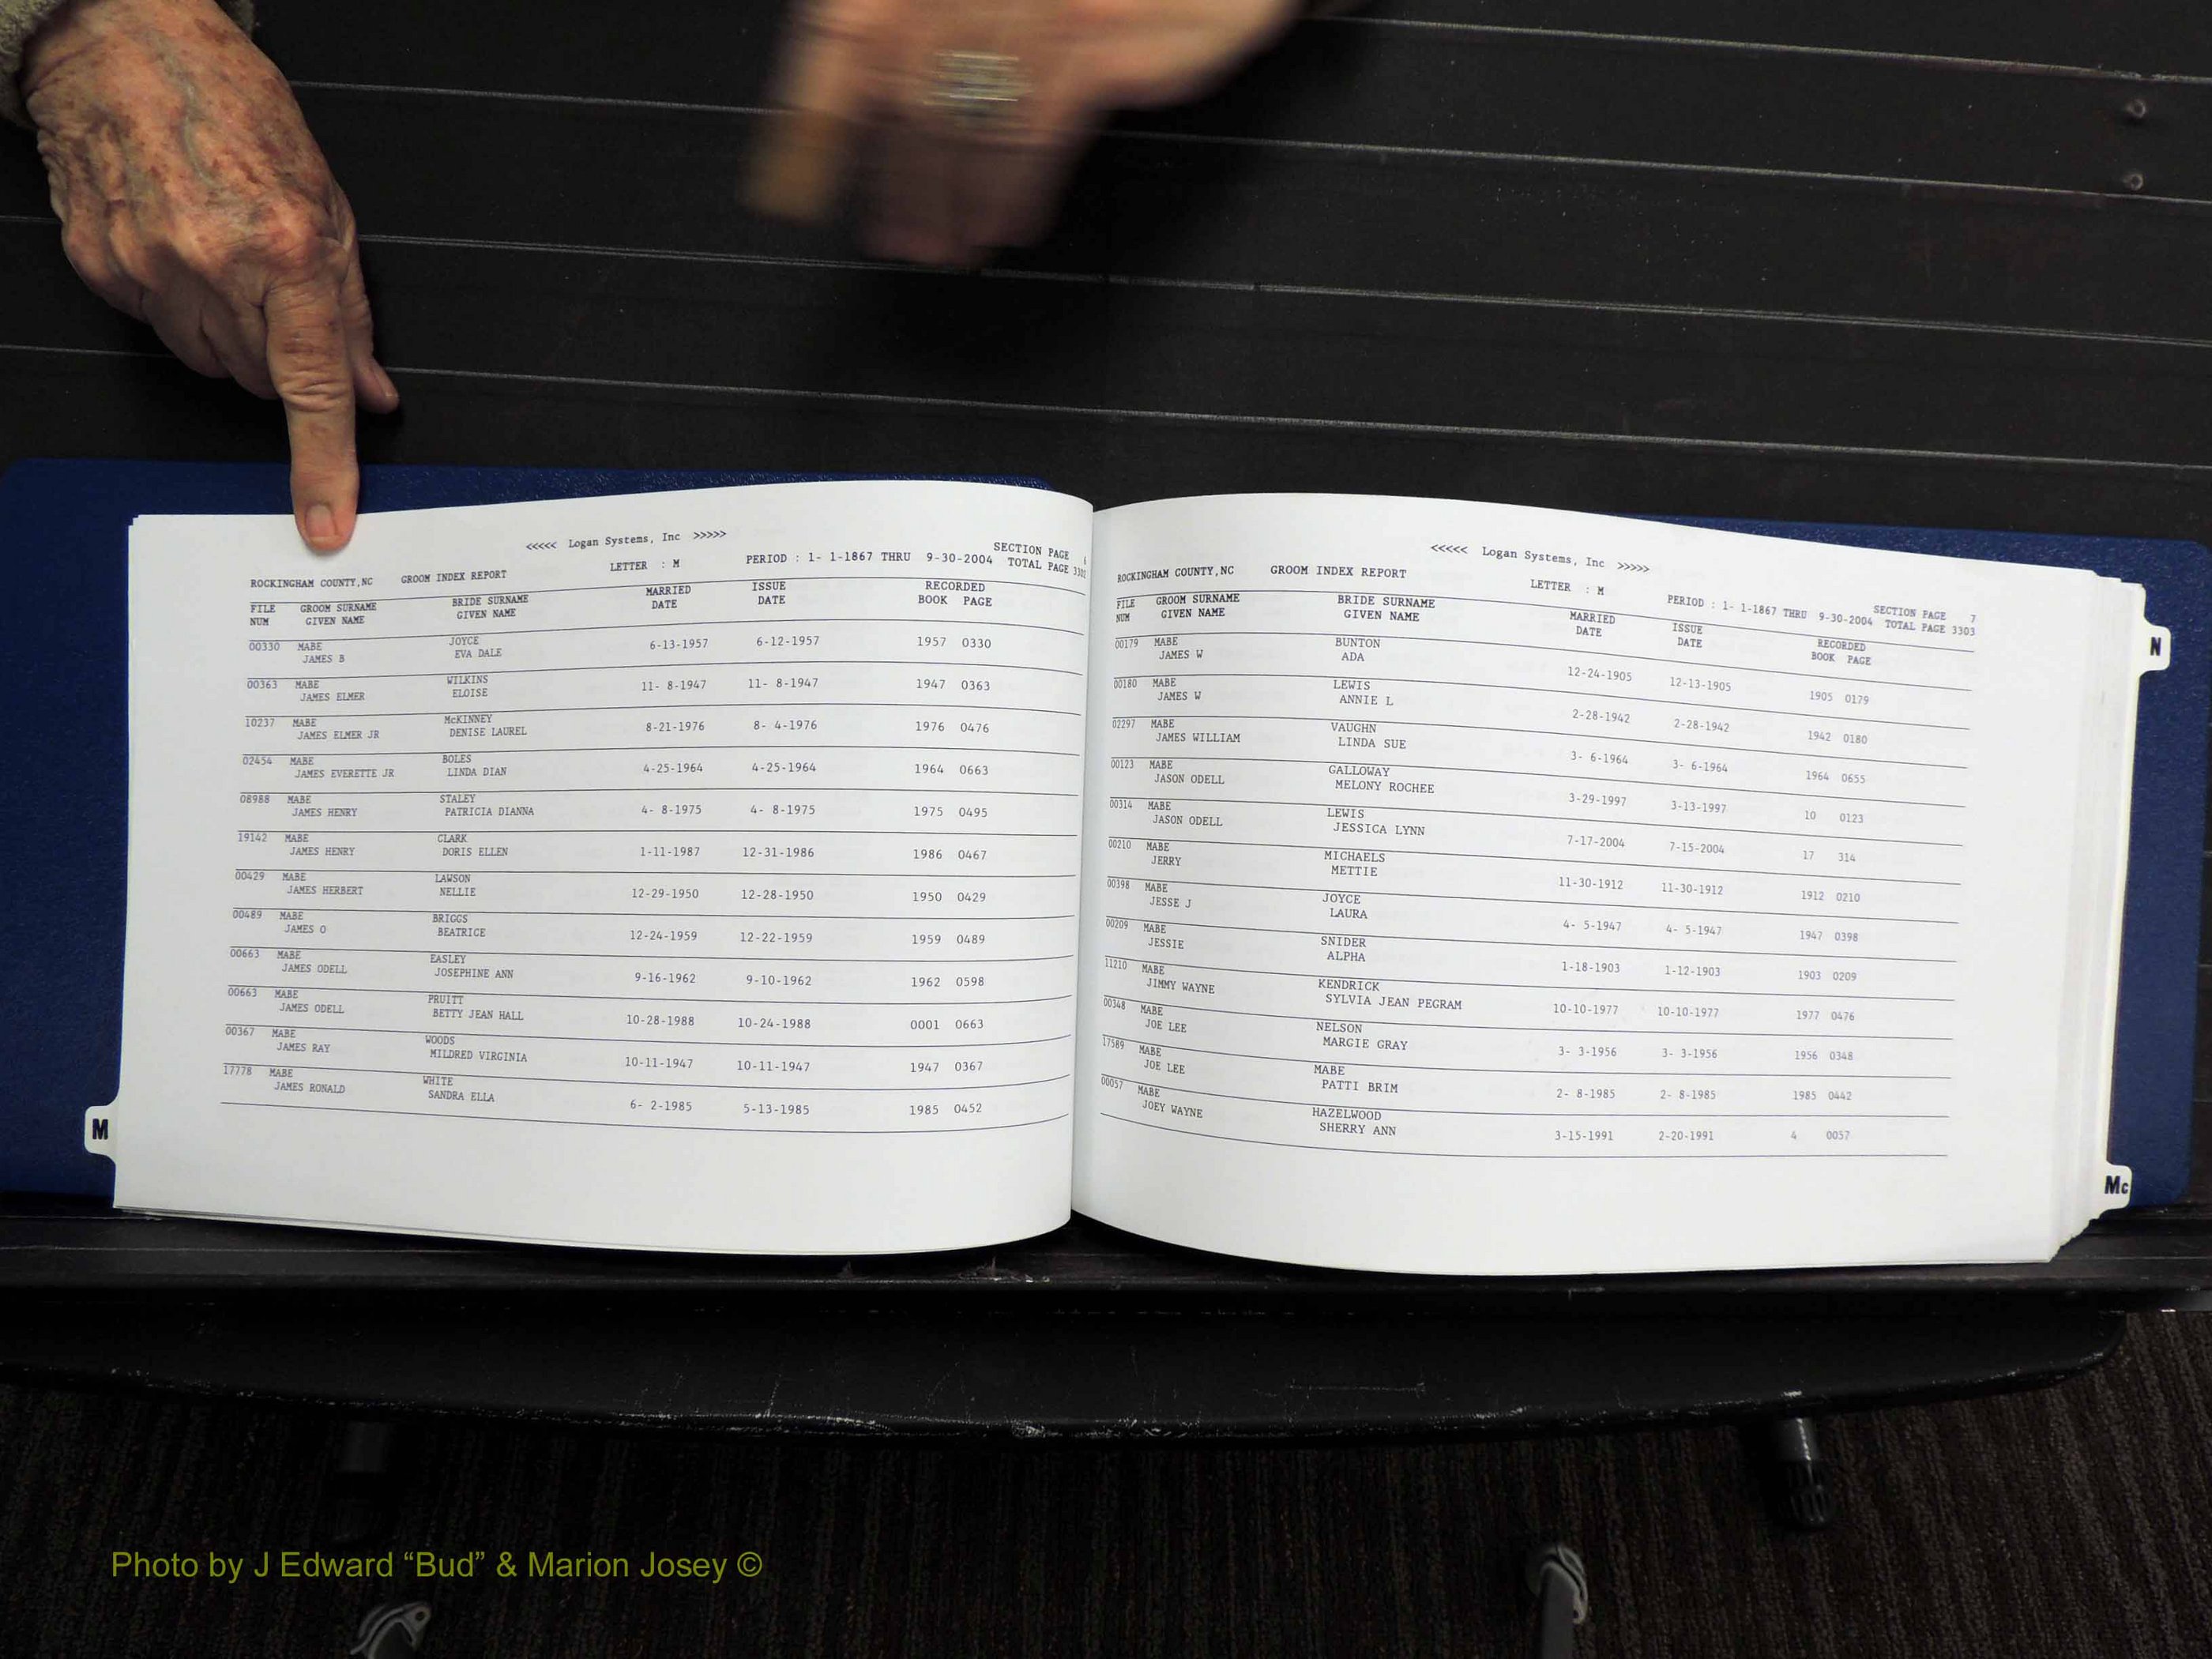 <<<<< Logan Systems, Inc >>>>>
ROCKINGHAM COUNTY,NC GROOM INDEX REPORT LETTER : M PERIOD : 1- 1-1867 THRU 9-30-2004 SECTION PAGE
TOTAL PAGE
FILE GROOM SURNAME BRIDE SURNAME MARRIED ISSUE RECORDED
NUM GIVEN NAME GIVEN NAME DATE DATE BOOK PAGE
00330 MABE JOYCE 6-13-1957 6-12-1957 1957 0330
JAMES B EVA DALE
00363 MABE WILKINS 11- 8-1947 11- 8-1947 1947 0363
JAMES ELMER ELOISE
10237 MABE McKINNEY 8-21-1976 8- 4-1976 1976 0476
JAMES ELMER JR DENISE LAUREL
02454 MABE BOLES 4-25-1964 4-25-1964 1964 0663
JAMES EVERETTE JR LINDA DIAN
08988 MABE STALEY 4- 8-1975 4- 8-1975 1975 0495
JAMES HENRY PATRICIA DIANNA
19142 MABE CLARK 1-11-1987 12-31-1986 1986 0467
JAMES HENRY DORIS ELLEN
00429 MABE LAWSON 12-29-1950 12-28-1950 1950 0429
JAMES HERBERT NELLIE
00489 MABE BRIGGS 12-24-1959 12-22-1959 1959 0489
JAMES O BEATRICE
00663 MABE EASLEY 9-16-1962 9-10-1962 1962 0598
JAMES ODELL JOSEPHINE ANN
00663 MABE PRUITT 10-28-1988 10-24-1988 0001 0663
JAMES ODELL BETTY JEAN HALL
00367 MABE WOODS 10-11-1947 10-11-1947 1947 0367
JAMES RAY MILDRED VIRGINIA
17778 MABE WHITE 6- 2-1985 5-13-1985 1985 0452
JAMES RONALD SANDRA ELLA
M
<<<<< Logan Systems, Inc >>>>>
ROCKINGHAM COUNTY,NC GROOM INDEX REPORT LETTER : M PERIOD : 1- 1-1867 THRU 9-30-2004 SECTION PAGE 7
TOTAL PAGE 3303
FILE GROOM SURNAME BRIDE SURNAME MARRIED ISSUE RECORDED
NUM GIVEN NAME GIVEN NAME DATE DATE BOOK PAGE
00179 MABE BUNTON 12-24-1905 12-13-1905 1905 0179
JAMES W ADA
00180 MABE LEWIS 2-28-1942 2-28-1942 1942 0180
JAMES W ANNIE L
02297 MABE VAUGHN 3- 6-1964 3- 6-1964 1964 0655
JAMES WILLIAM LINDA SUE
00123 MABE GALLOWAY 3-29-1997 3-13-1997 10 0123
JASON ODELL MELONY ROCHEE
00314 MABE LEWIS 7-17-2004 7-15-2004 17 314
JASON ODELL JESSICA LYNN
00210 MABE MICHAELS 11-30-1912 11-30-1912 1912 0210
JERRY METTIE
00398 MABE JOYCE 4- 5-1947 4- 5-1947 1947 0398
JESSE J LAURA
00209 MABE SNIDER 1-18-1903 1-12-1903 1903 0209
JESSIE ALPHA
11210 MABE KENDRICK 10-10-1977 10-10-1977 1977 0476
JIMMY WAYNE SYLVIA JEAN PEGRAM
00348 MABE NELSON 3- 3-1956 3- 3-1956 1956 0348
JOE LEE MARGIE GRAY
17589 MABE MABE 2- 8-1985 2- 8-1985 1985 0442
JOE LEE PATTI BRIM
00057 MABE HAZELWOOD 3-15-1991 2-20-1991 4 0057
JOEY WAYNE SHERRY ANN
N
Mc
Photo by J Edward “Bud” & Marion Josey ©